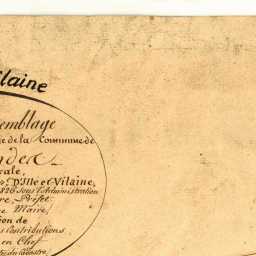 ilaine
emblage
de la Commune de
cale,
D'Ille et Vilaine,
1826 sous l'Administration
re, Préfet
e Maire,
ion de
s Contributions
en Chef
du Cadastre,